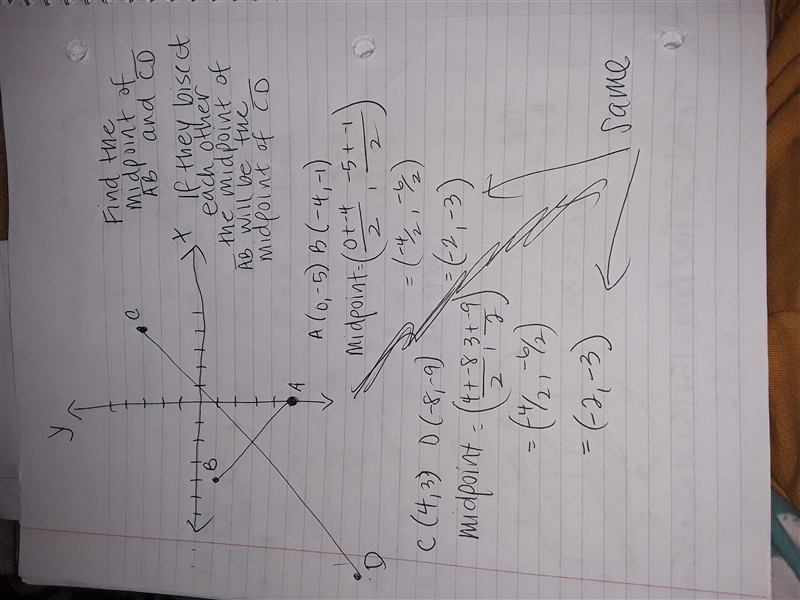 Find the
midpoint of
AB and CD
If they bisect
each other
the midpoint of
AB will be the
midpoint of CD
y
x
C
B
A
D
A(0,-5) B(-4,-1)
midpoint=(0+-4/2, -5+-1/2)
=(-4/2, -6/2)
=(-2,-3)
C(4,3) D(-8,-9)
midpoint=(4+-8/2, 3+-9/2)
=(-4/2, -6/2)
=(-2,-3)
Same